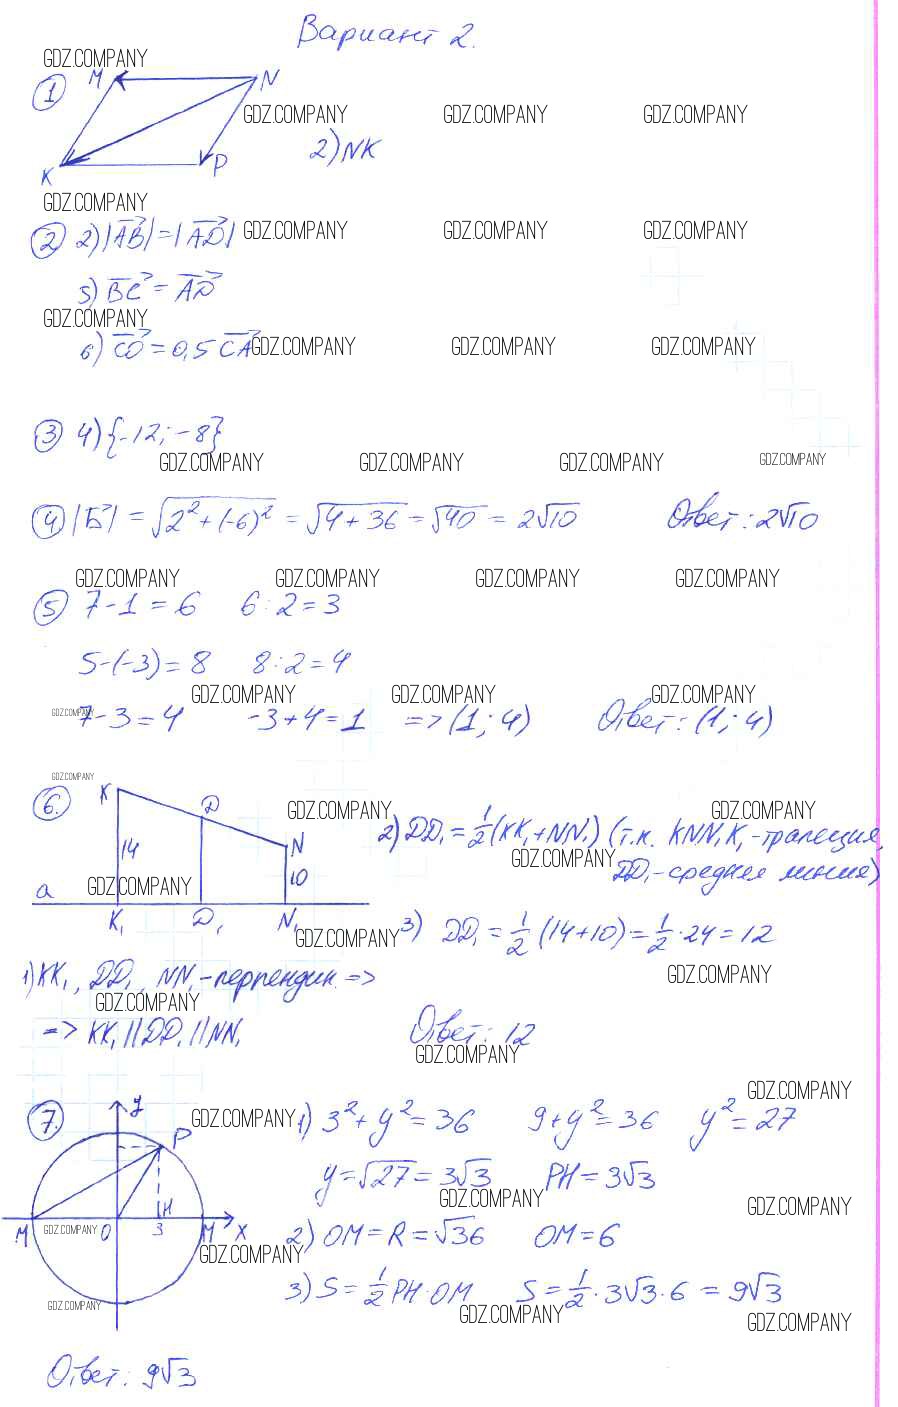 Вариант 2.
GDZ.COMPANY
① M N
GDZ.COMPANY GDZ.COMPANY GDZ.COMPANY
2) NK
K P
GDZ.COMPANY
② 2) |AB| = |AD| GDZ.COMPANY GDZ.COMPANY GDZ.COMPANY
5) BC = AD
GDZ.COMPANY
6) CO = 0,5 CA GDZ.COMPANY GDZ.COMPANY GDZ.COMPANY
③ 4) {-12; -8}
GDZ.COMPANY GDZ.COMPANY GDZ.COMPANY GDZ.COMPANY
④ |b| = √2² + (-6)² = √4 + 36 = √40 = 2√10 Ответ: 2√10
GDZ.COMPANY GDZ.COMPANY GDZ.COMPANY GDZ.COMPANY
⑤ 7 - 1 = 6 6 : 2 = 3
5 - (-3) = 8 8 : 2 = 4
GDZ.COMPANY GDZ.COMPANY GDZ.COMPANY
GDZ.COMPANY
7 - 3 = 4 -3 + 4 = 1 => (1; 4) Ответ: (1; 4)
GDZ.COMPANY
⑥. K D N
14 10
a
K₁ D₁ N₁
GDZ.COMPANY GDZ.COMPANY
2) DD₁ = 1/2 (KK₁ + NN₁) (т.к. KNN₁K₁ - трапеция,
GDZ.COMPANY
DD₁ - средняя линия)
GDZ.COMPANY
GDZ.COMPANY 3) DD₁ = 1/2 (14 + 10) = 1/2 · 24 = 12
1) KK₁, DD₁, NN₁ - перпендик. =>
GDZ.COMPANY
GDZ.COMPANY
=> KK₁ || DD₁ || NN₁ Ответ: 12
GDZ.COMPANY
GDZ.COMPANY
⑦. y P
M O H 3 M X
GDZ.COMPANY 1) 3² + y² = 36 9 + y² = 36 y² = 27
y = √27 = 3√3 PH = 3√3
GDZ.COMPANY GDZ.COMPANY
GDZ.COMPANY
2) OM = R = √36 OM = 6
GDZ.COMPANY
3) S = 1/2 PH · OM S = 1/2 · 3√3 · 6 = 9√3
GDZ.COMPANY
GDZ.COMPANY GDZ.COMPANY
Ответ: 9√3